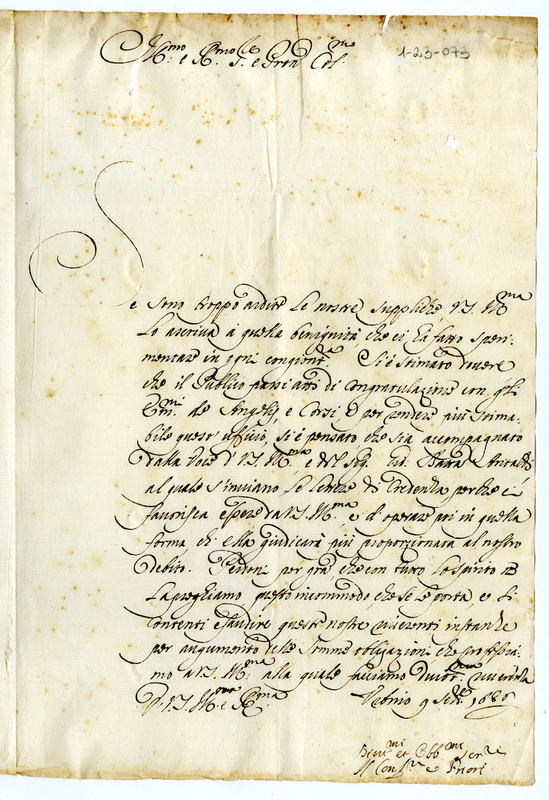 Ill.mo e R.mo S.re e Pron Col.mo
1-23-073
Se sono troppo ardite le nostre suppliche V.S. Ill.ma
lo ascriva a quella benignità che ci hà fatto speri-
mentare in ogni congiont.a Si è stimato dovere
che il Publico passi atto di congratulazione con gl'
Em.mi de Angelis, e Corsi e per rendere più stima-
bile quest' ufficio, si è pensato che sia accompagnato
dalla voce d' V.S. Ill.ma, e del Sig.
al quale s'inviano le lettere di Credenza perche ci
favorisca essere da V.S. Ill.ma, e d' operare poi in quella
forma, ch' ella giudicarà più proporzionata al nostro
debito. Perdoni per gra, che con tutto lo spirito
la preghiamo questo incommodo, che se le porta, e si
contenti esaudire queste nostre riverenti instanze
per augumento delle somme obligazioni che professia-
mo a V.S. Ill.ma alla quale facciamo devot.ma riverenza
D. V.S. Ill.ma e R.ma
Urbino 9 Sett.e 1686
Devot.mi et Obb.mi Ser.re
Il Conf.re e Priori